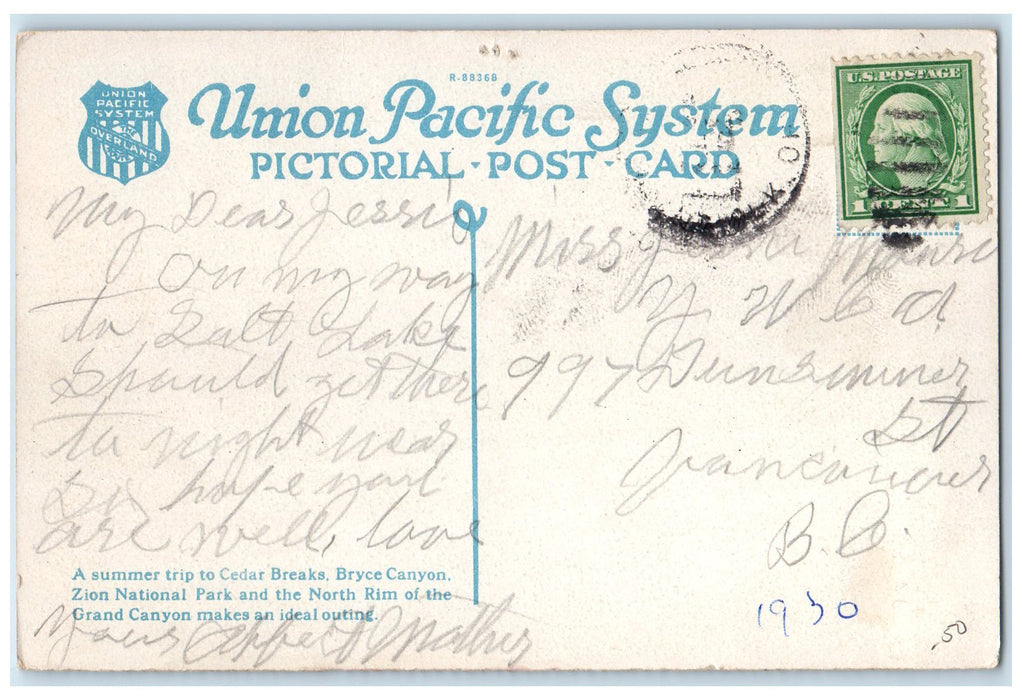 R-88368
UNION
PACIFIC
SYSTEM
OVERLAND
Union Pacific System
PICTORIAL - POST - CARD
U.S. POSTAGE
1 CENTS 1
My Dear Jessie
On my way
to Salt Lake
Should get there
to night near
Six hope your
are well, love
A summer trip to Cedar Breaks, Bryce Canyon,
Zion National Park and the North Rim of the
Grand Canyon makes an ideal outing.
Yours Mother
Miss Jessie
Y W C A
997 Dunsmuner
St
Vancouver
B. C.
1930
50